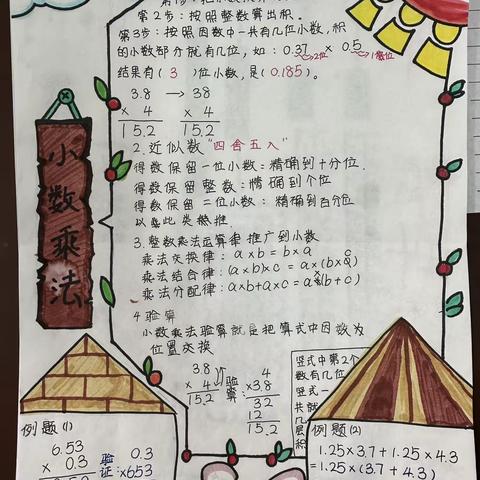 第2步：按照整数算出积。
第3步：按照因数中一共有几位小数，积
的小数部分就有几位，如：0.37 × 0.5
→2位 →1位
结果有(3)位小数，是(0.185)。
3.8 → 38
× 4 × 4
15.2 15.2
2.近似数"四舍五入"
得数保留一位小数：精确到十分位.
得数保留整数：精确到个位
得数保留二位小数：精确到百分位
以此类推.
3.整数乘法运算律推广到小数
乘法交换律：a×b=b×a
乘法结合律：(a×b)×c=a×(b×c)
乘法分配律：a×b+a×c=a×(b+c)
4验算
小数乘法验算就是把算式中因数
位置交换
38 4
× 4 验算: ×3.8
15.2 32
12
15.2
小数乘法
竖式中第2个
数有几位
竖式一
共就
几
层
积
例题(1)
6.53 0.3
× 0.3 验证: ×653
例题(2)
1.25×3.7+1.25×4.3
=1.25×(3.7+4.3)